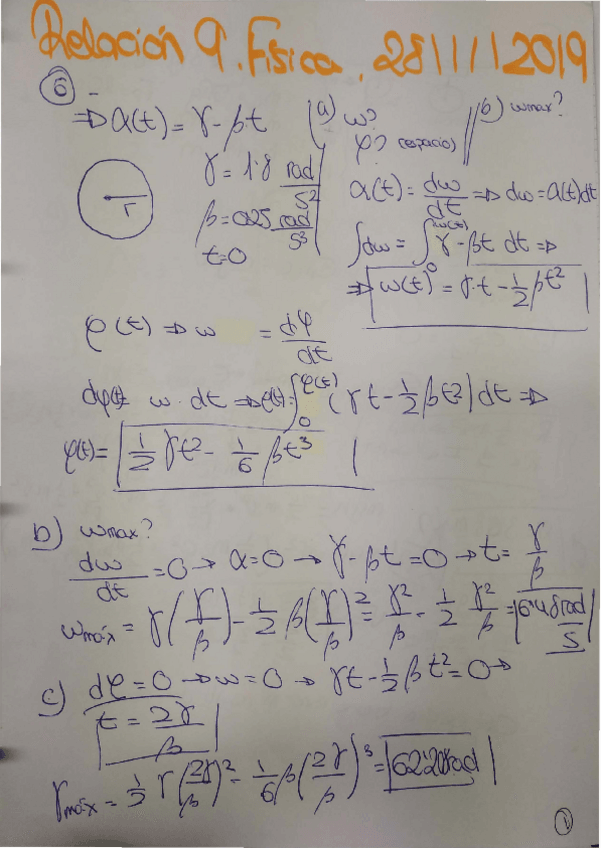 Relación 9. Física. 28/11/2019
⑥ -
⇒ α(t) = γ - βt
(a) ω?
φ? (espacio)
b) ωmax?
γ = 1'8 rad/s²
β = 0'25 rad/s³
t=0
r
α(t) = dω/dt ⇒ dω = α(t)dt
∫dω = ∫₀^ω(t) γ - βt dt ⇒
⇒ ω(t) = γ·t - 1/2 βt²
φ(t) ⇒ ω = dφ/dt
dφ(t) ω·dt ⇒ φ(t) = ∫₀^φ(t) (γt - 1/2 βt²) dt ⇒
φ(t) = 1/2 γt² - 1/6 βt³
b) ωmax?
dω/dt = 0 → α=0 → γ-βt=0 → t= γ/β
ωmáx = γ(γ/β) - 1/2 β(γ/β)² = γ²/β - 1/2 γ²/β = 6'48 rad/s
c) dφ=0 → ω=0 → γt - 1/2 βt² = 0 →
t = 2γ/β
γmáx = 1/2 γ(2γ/β)² - 1/6 β(2γ/β)³ = 62'208 rad
1